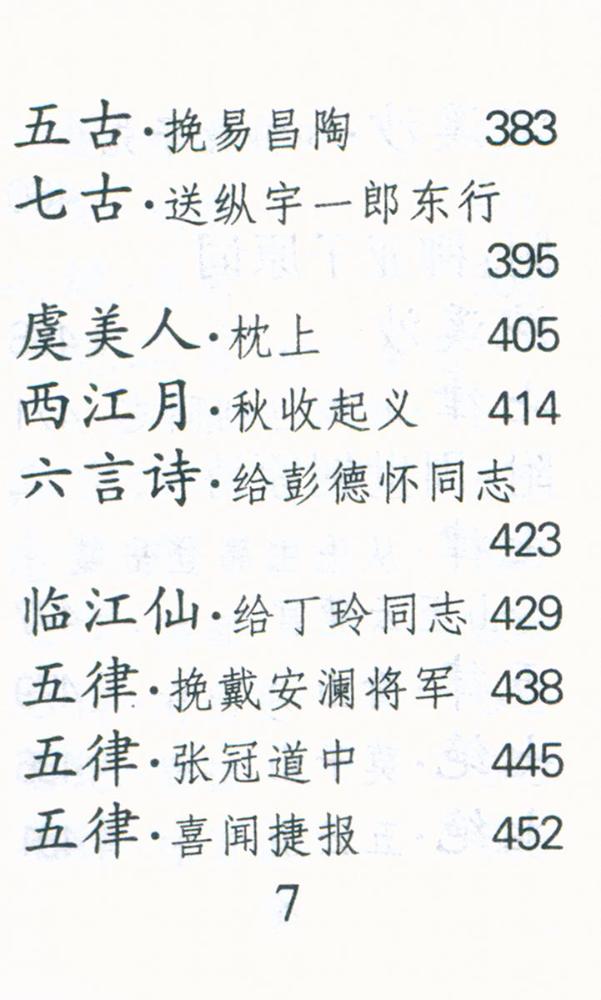 五古·挽易昌陶 383
七古·送纵宇一郎东行
395
虞美人·枕上 405
西江月·秋收起义 414
六言诗·给彭德怀同志
423
临江仙·给丁玲同志 429
五律·挽戴安澜将军 438
五律·张冠道中 445
五律·喜闻捷报 452
7